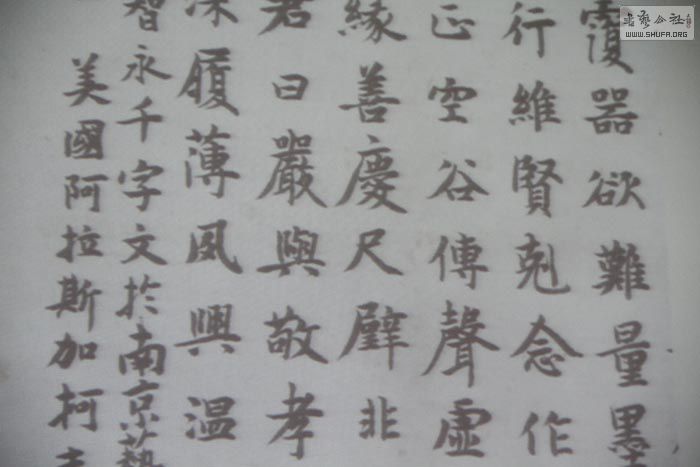 覆器欲難量墨
行維賢剋念作
正空谷傳聲虛
緣善慶尺璧非
君曰嚴與敬孝
深履薄夙興温
智永千字文於南京藝
美國阿拉斯加柯
書藝公社
WWW.SHUFA.ORG